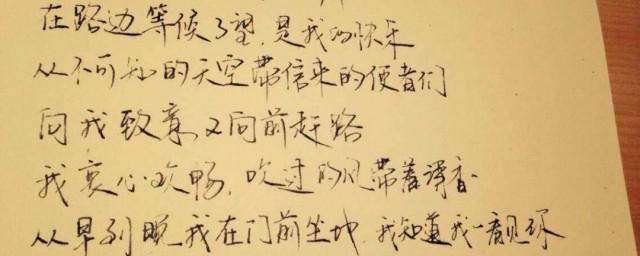 在路边等候了望,是我的快乐
从不可知的天空带信来的使者们
向我致意又向前赶路
我衷心欢畅,吹过的风带着清香
从早到晚我在门前坐地,我知道我一看见你